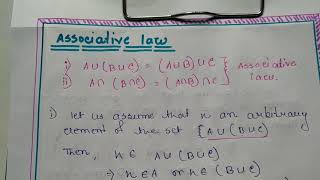 Associative law
i) A∪(B∪C) = (A∪B)∪C } Associative
ii) A∩(B∩C) = (A∩B)∩C } law.
i) let us assume that x an arbitrary
element of the set {A∪(B∪C)
Then, x ∈ A∪(B∪C)
⇒ x∈A or x∈(B∪C)